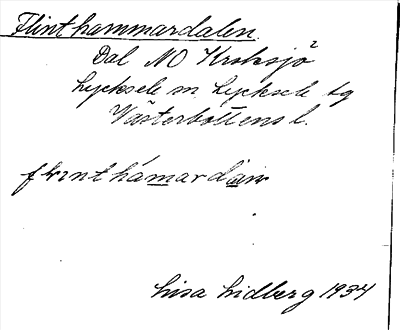 Flinthammardalen.
Dal NO Kroksjö
Lycksele sn. Lycksele tg
Västerbottens l.
Lisa Lidberg 1934